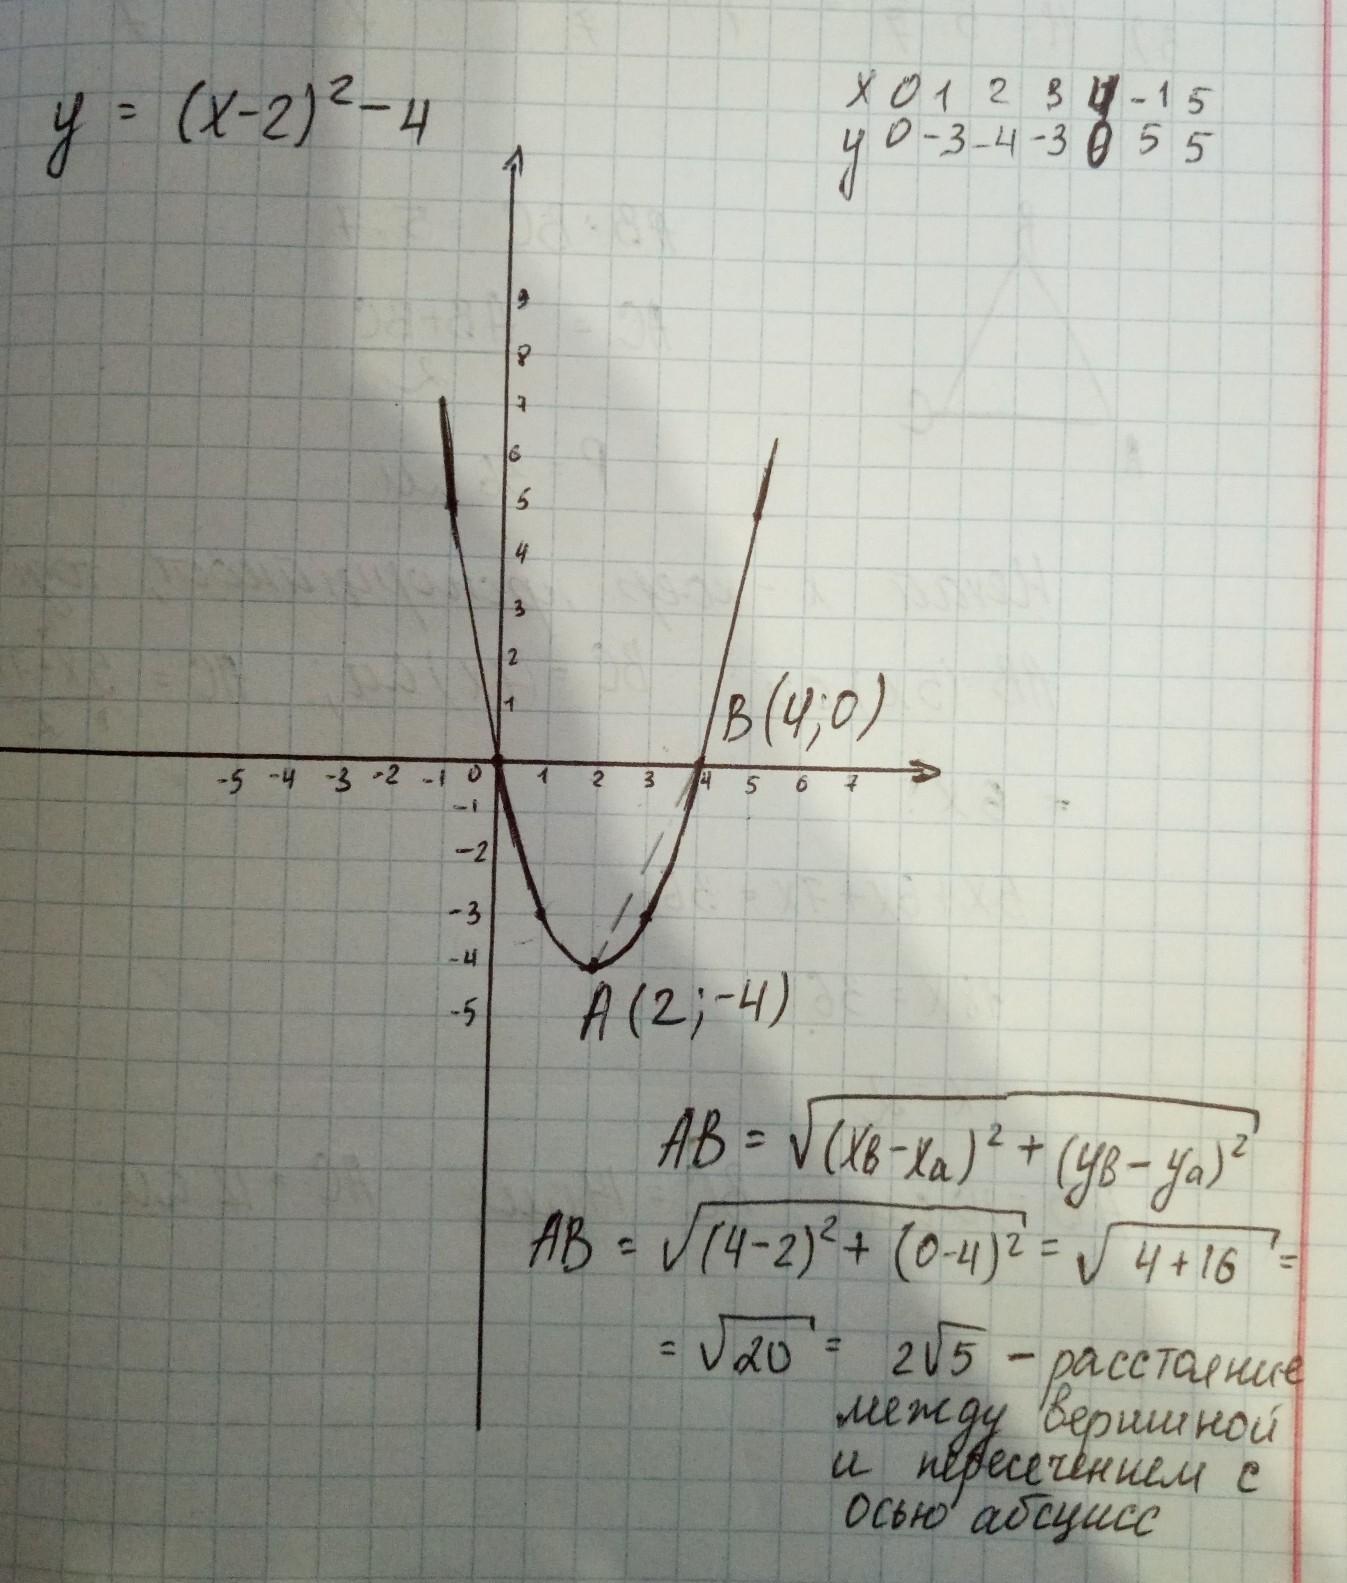 y = (x-2)² - 4
x 0 1 2 3 4 -1 5
y 0 -3 -4 -3 0 5 5
9
8
7
6
5
4
3
2
1
B(4;0)
-5 -4 -3 -2 -1 0 1 2 3 4 5 6 7
-1
-2
-3
-4
-5
A(2;-4)
AB = √((xB-xa)² + (yB-ya)²)
AB = √((4-2)² + (0-4)²) = √(4+16) =
= √20 = 2√5 - расстояние
между вершиной
и пересечением с
осью абсцисс